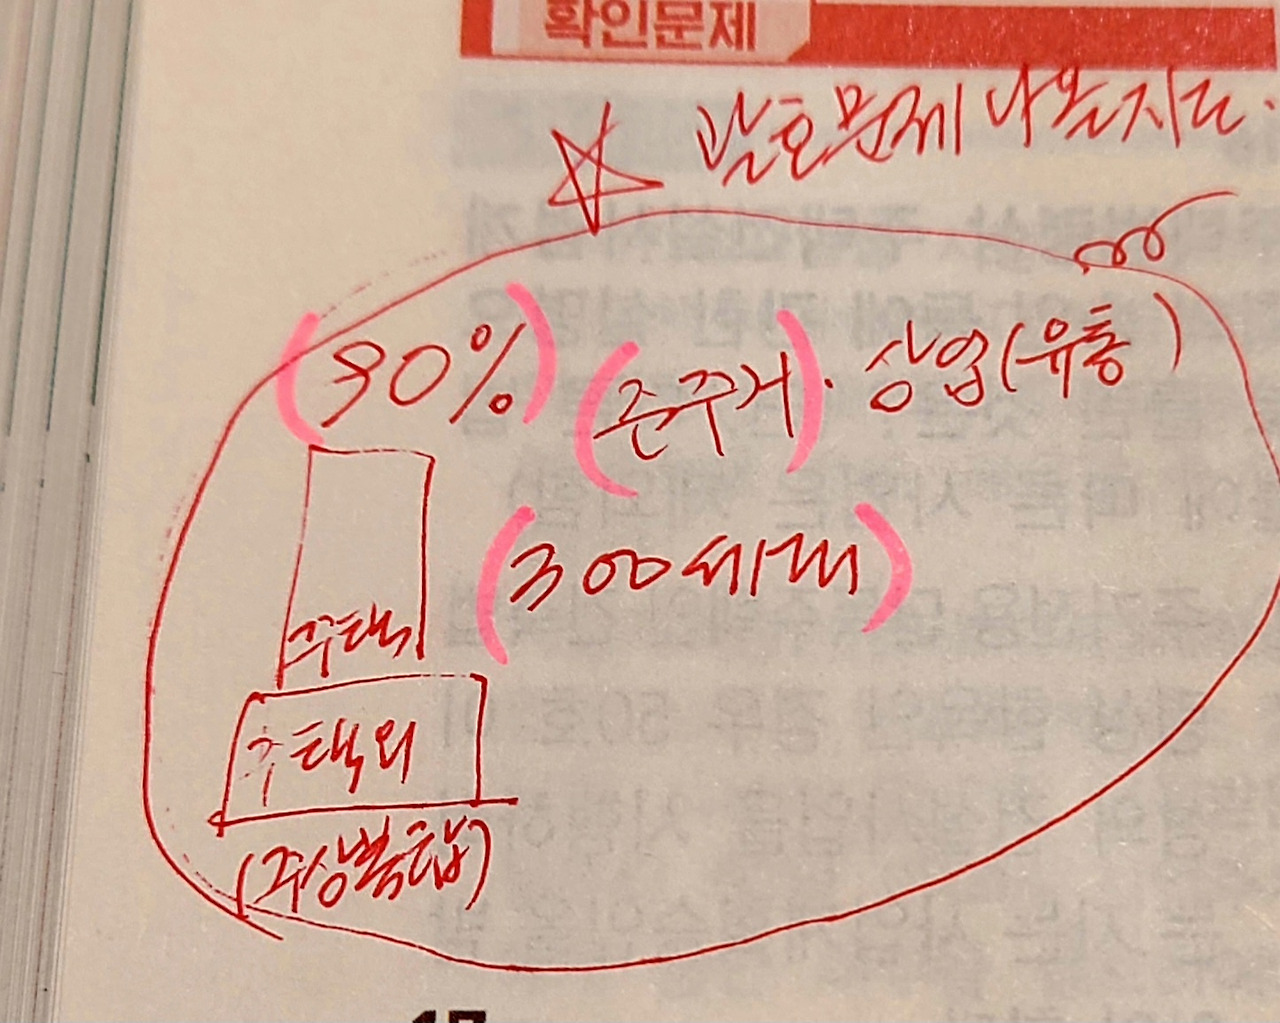 확인문제
괄호문제 나올지도.
(90%) (준주거)·상업(유통)
(300세대)
주택
주택외
(주상복합)
17